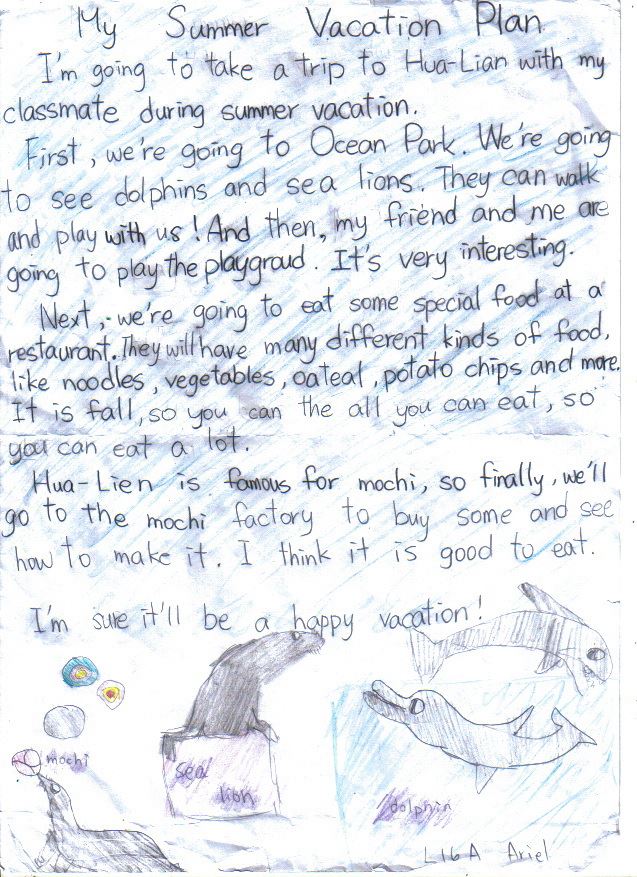 My Summer Vacation Plan
I'm going to take a trip to Hua-Lian with my
classmate during summer vacation.
First, we're going to Ocean Park. We're going
to see dolphins and sea lions. They can walk
and play with us! And then, my friend and me are
going to play the playgroud. It's very interesting.
Next, we're going to eat some special food at a
restaurant. They will have many different kinds of food,
like noodles, vegetables, oateal, potato chips and more.
It is fall, so you can the all you can eat, so
you can eat a lot.
Hua-Lien is famous for mochi, so finally, we'll
go to the mochi factory to buy some and see
how to make it. I think it is good to eat.
I'm sure it'll be a happy vacation!
mochi
sea
lion
dolphin
L16A Ariel